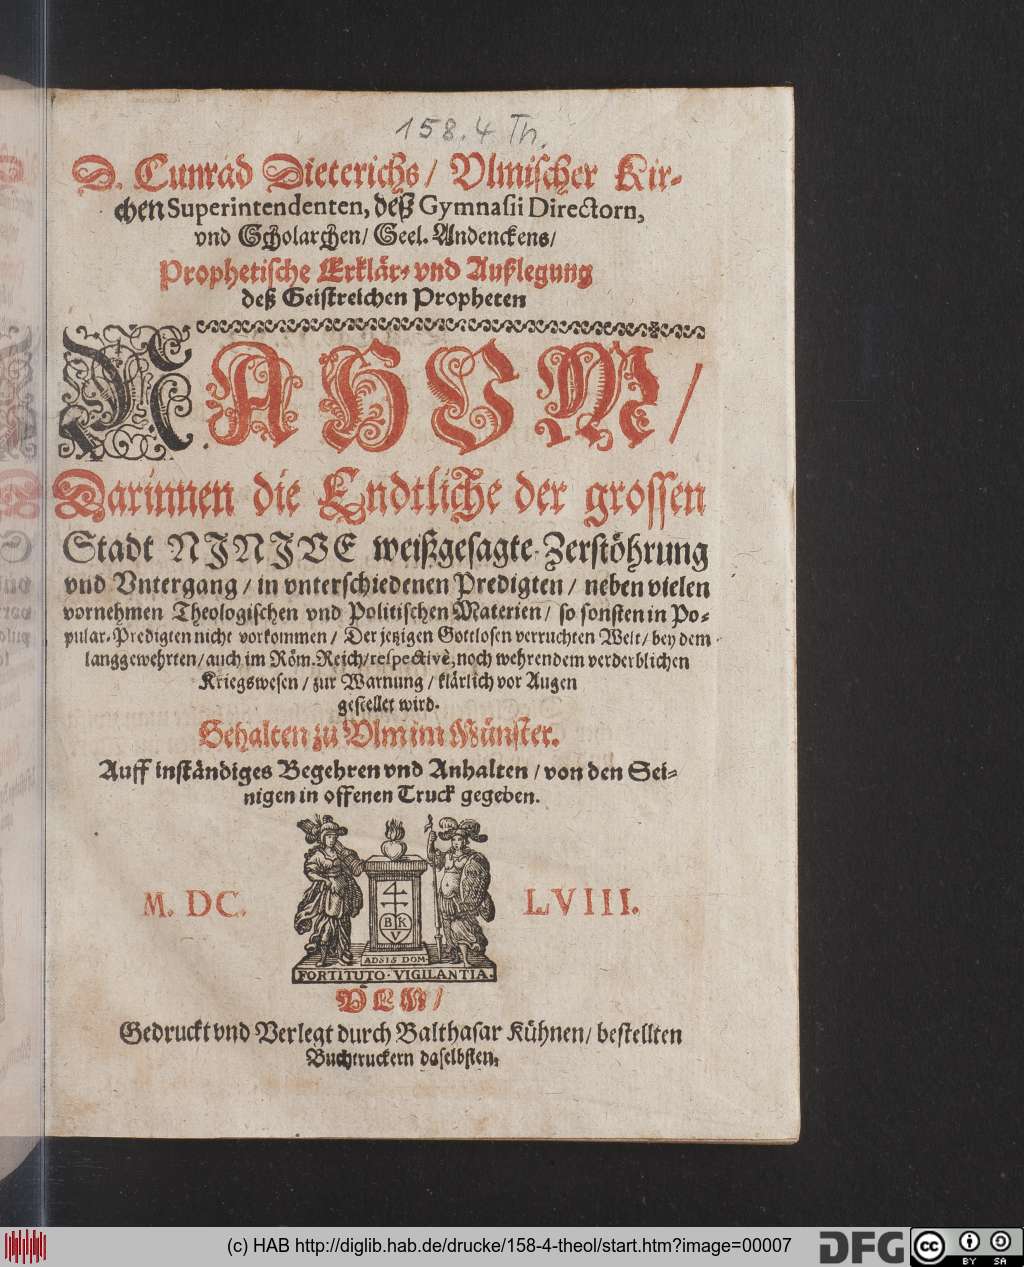 158.4 Th.
D. Cunrad Dieterichs / Vlmischer Kir-
chen Superintendenten, deß Gymnasii Directorn,
vnd Scholarchen / Seel. Andenckens /
Prophetische Erklär- vnd Außlegung
deß Geistreichen Propheten
NAHVM /
Darinnen die Endtliche der grossen
Stadt NINIVE weißgesagte Zerstöhrung
vnd Vntergang / in vnterschiedenen Predigten / neben vielen
vornehmen Theologischen vnd Politischen Materien / so sonsten in Po-
pular-Predigten nicht vorkommen / Der jetzigen Gottlosen verruchten Welt / bey dem
langgewehrten / auch im Röm. Reich / respectivè, noch wehrendem verderblichen
Kriegswesen / zur Warnung / klärlich vor Augen
gestellet wird.
Gehalten zu Vlm im Münster.
Auff inständiges Begehren vnd Anhalten / von den Sei-
nigen in offenen Truck gegeben.
M. DC. LVIII.
B K
V
ADSIS DOM.
FORTITUTO · VIGILANTIA.
VLM /
Gedruckt vnd Verlegt durch Balthasar Kühnen / bestellten
Buchtruckern daselbsten.
(c) HAB http://diglib.hab.de/drucke/158-4-theol/start.htm?image=00007
DFG
cc
BY SA